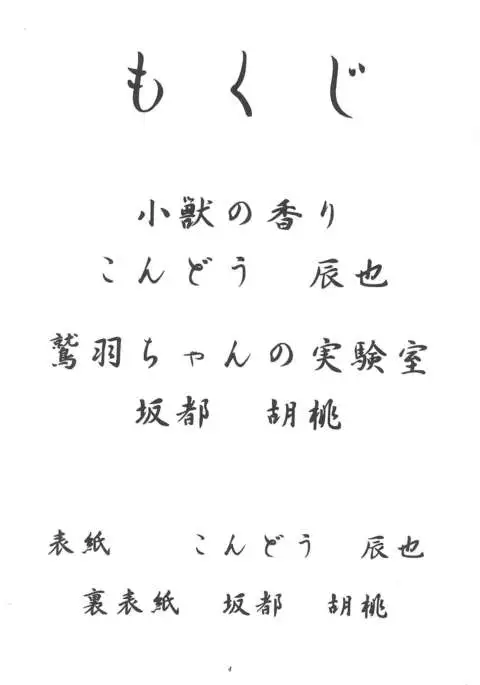 もくじ
小獣の香り
こんどう　辰也
鷲羽ちゃんの実験室
坂都　胡桃
表紙　こんどう　辰也
裏表紙　坂都　胡桃
4